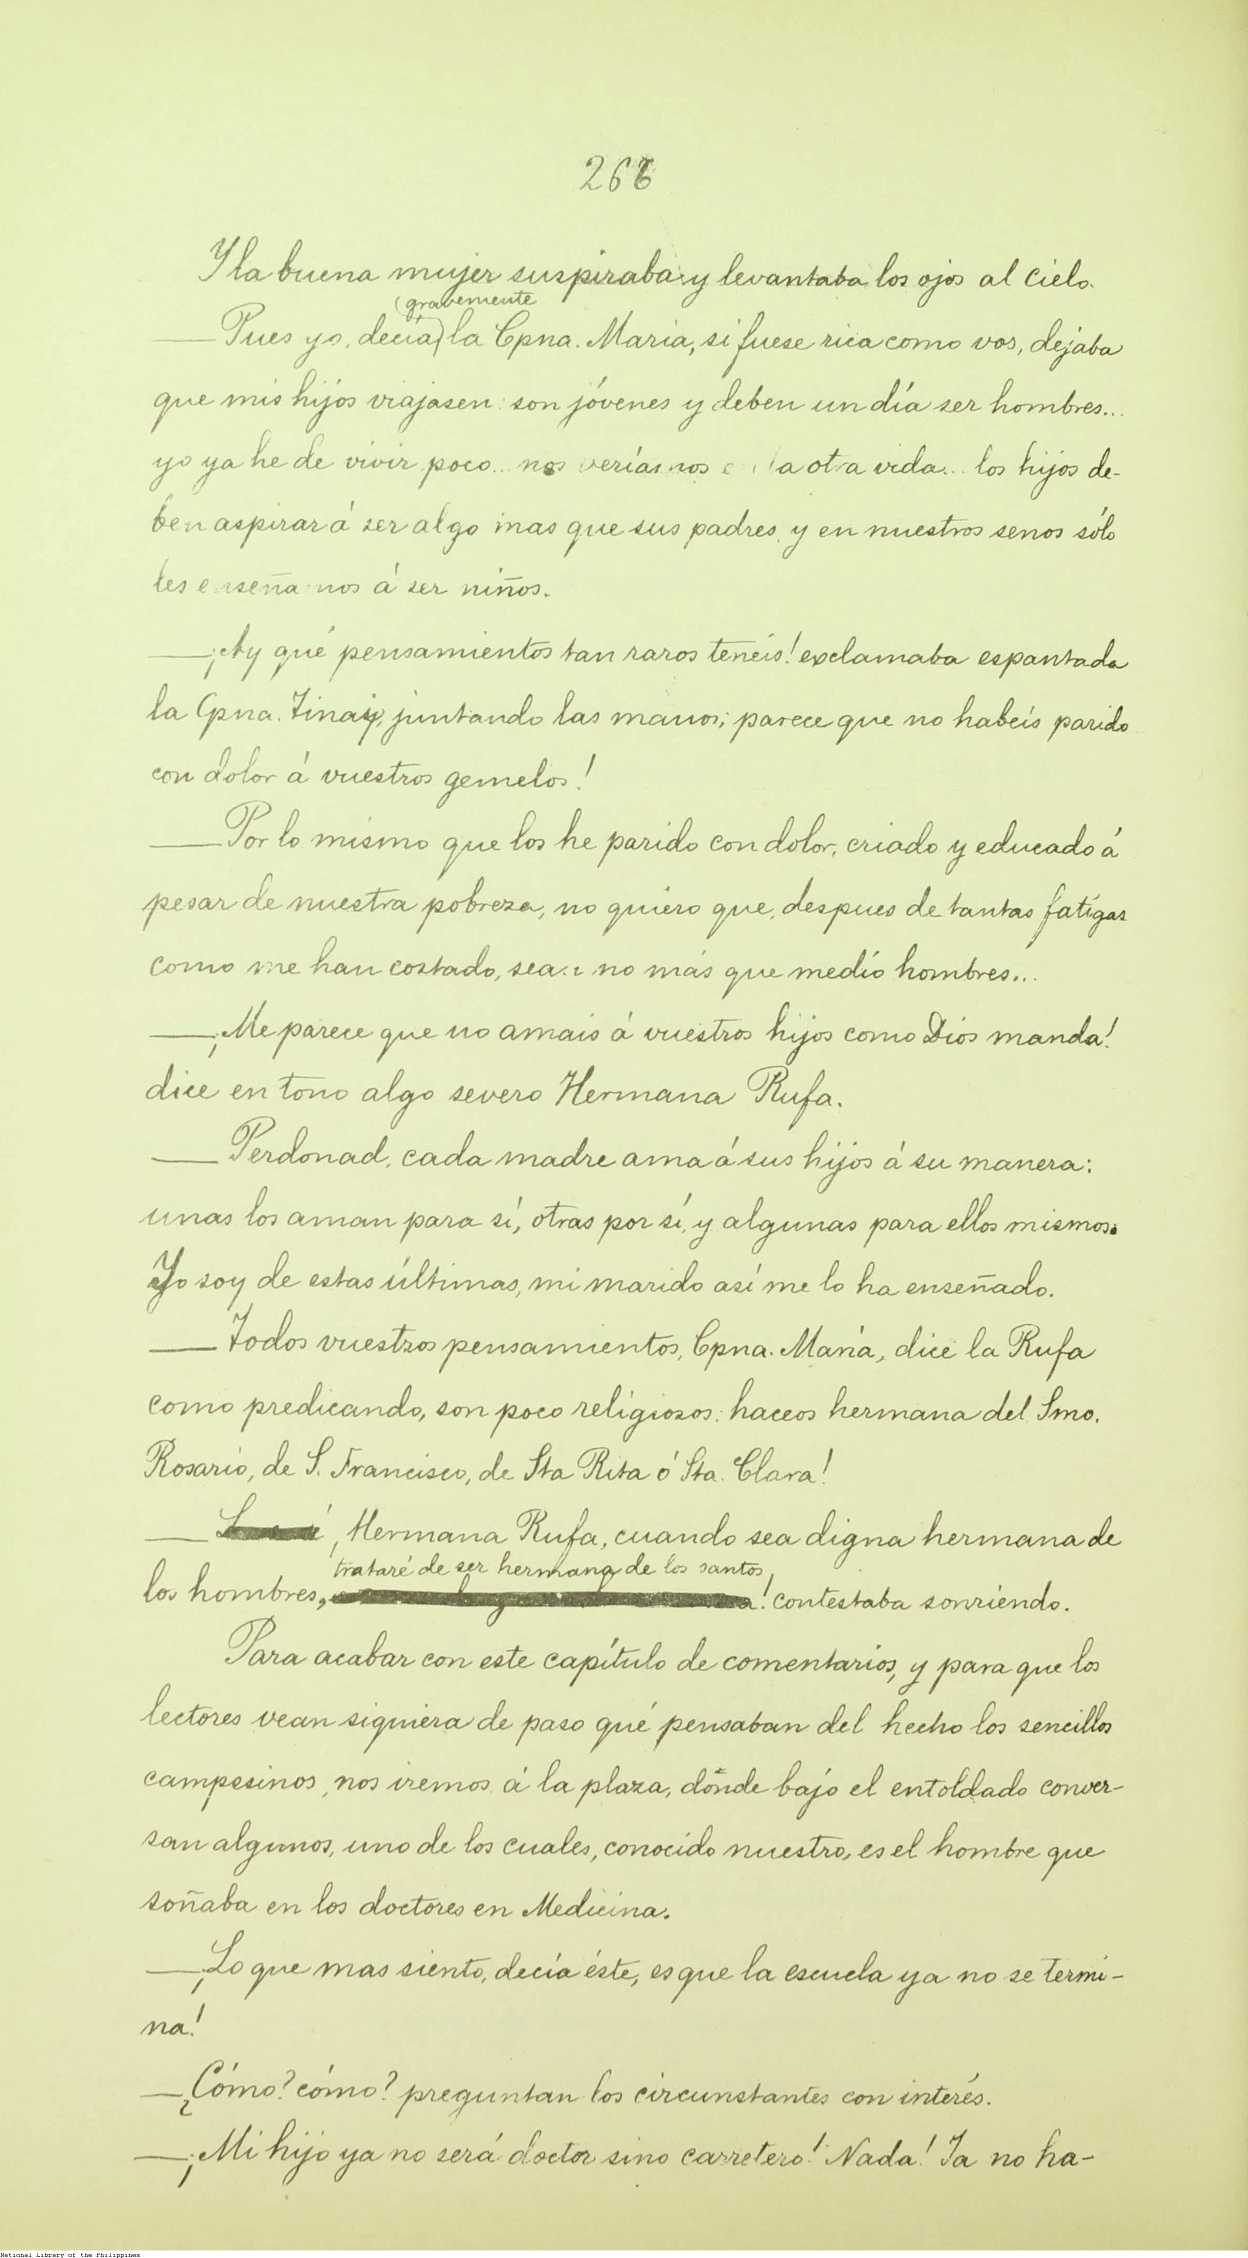 266
Y la buena mujer suspiraba y levantaba los ojos al cielo.
(gravemente
— Pues yo, decía) la Cpna. Maria, si fuese rica como vos, dejaba
que mis hijos viajasen: son jóvenes y deben un día ser hombres...
yo ya he de vivir poco... nos veríamos la otra vida... los hijos de-
ben aspirar á ser algo mas que sus padres, y en nuestros senos sólo
les enseñamos á ser niños.
— ¡Ay qué pensamientos tan raros teneis! exclamaba espantada
la Cpna. Tinay, juntando las manos; parece que no habeis parido
con dolor á vuestros gemelos!
— Por lo mismo que los he parido con dolor, criado y educado á
pesar de nuestra pobreza, no quiero que, despues de tantas fatigas
como me han costado, sean no más que medio hombres...
— ¡Me parece que no amais á vuestros hijos como Dios manda!
dice en tono algo severo Hermana Rufa.
— Perdonad, cada madre ama á sus hijos á su manera:
unas los aman para sí, otras por sí, y algunas para ellos mismos.
Yo soy de estas últimas, mi marido así me lo ha enseñado.
— Todos vuestros pensamientos, Cpna. María, dice la Rufa
como predicando, son poco religiosos: haceos hermana del Smo.
Rosario, de S. Francisco, de Sta Rita ó Sta. Clara!
— , Hermana Rufa, cuando sea digna hermana de
trataré de ser hermana de los santos,
los hombres, ! contestaba sonriendo.
Para acabar con este capítulo de comentarios, y para que los
lectores vean siquiera de paso qué pensaban del hecho los sencillos
campesinos, nos iremos á la plaza, dónde bajo el entoldado conver-
san algunos, uno de los cuales, conocido nuestro, es el hombre que
soñaba en los doctores en Medicina.
— ¡Lo que mas siento, decía éste, es que la escuela ya no se termi-
na!
— ¿Cómo? cómo? preguntan los circunstantes con interés.
— ¡Mi hijo ya no será doctor sino carretero! Nada! Ya no ha-
National Library of the Philippines